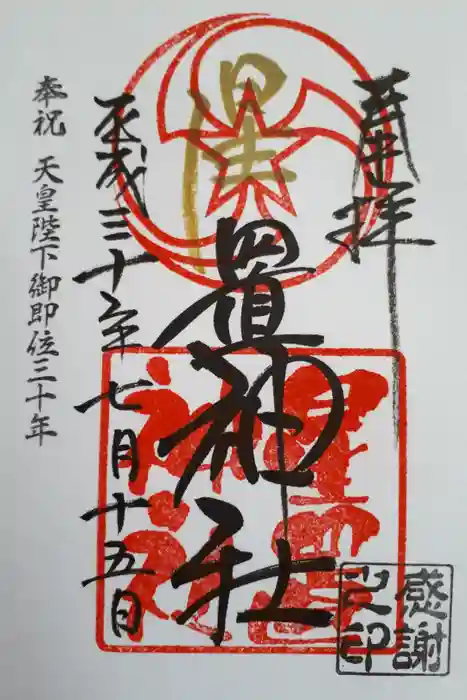 奉拝
置神社
平成三十年七月十五日
奉祝 天皇陛下御即位三十年
星置
神社
感謝
之印